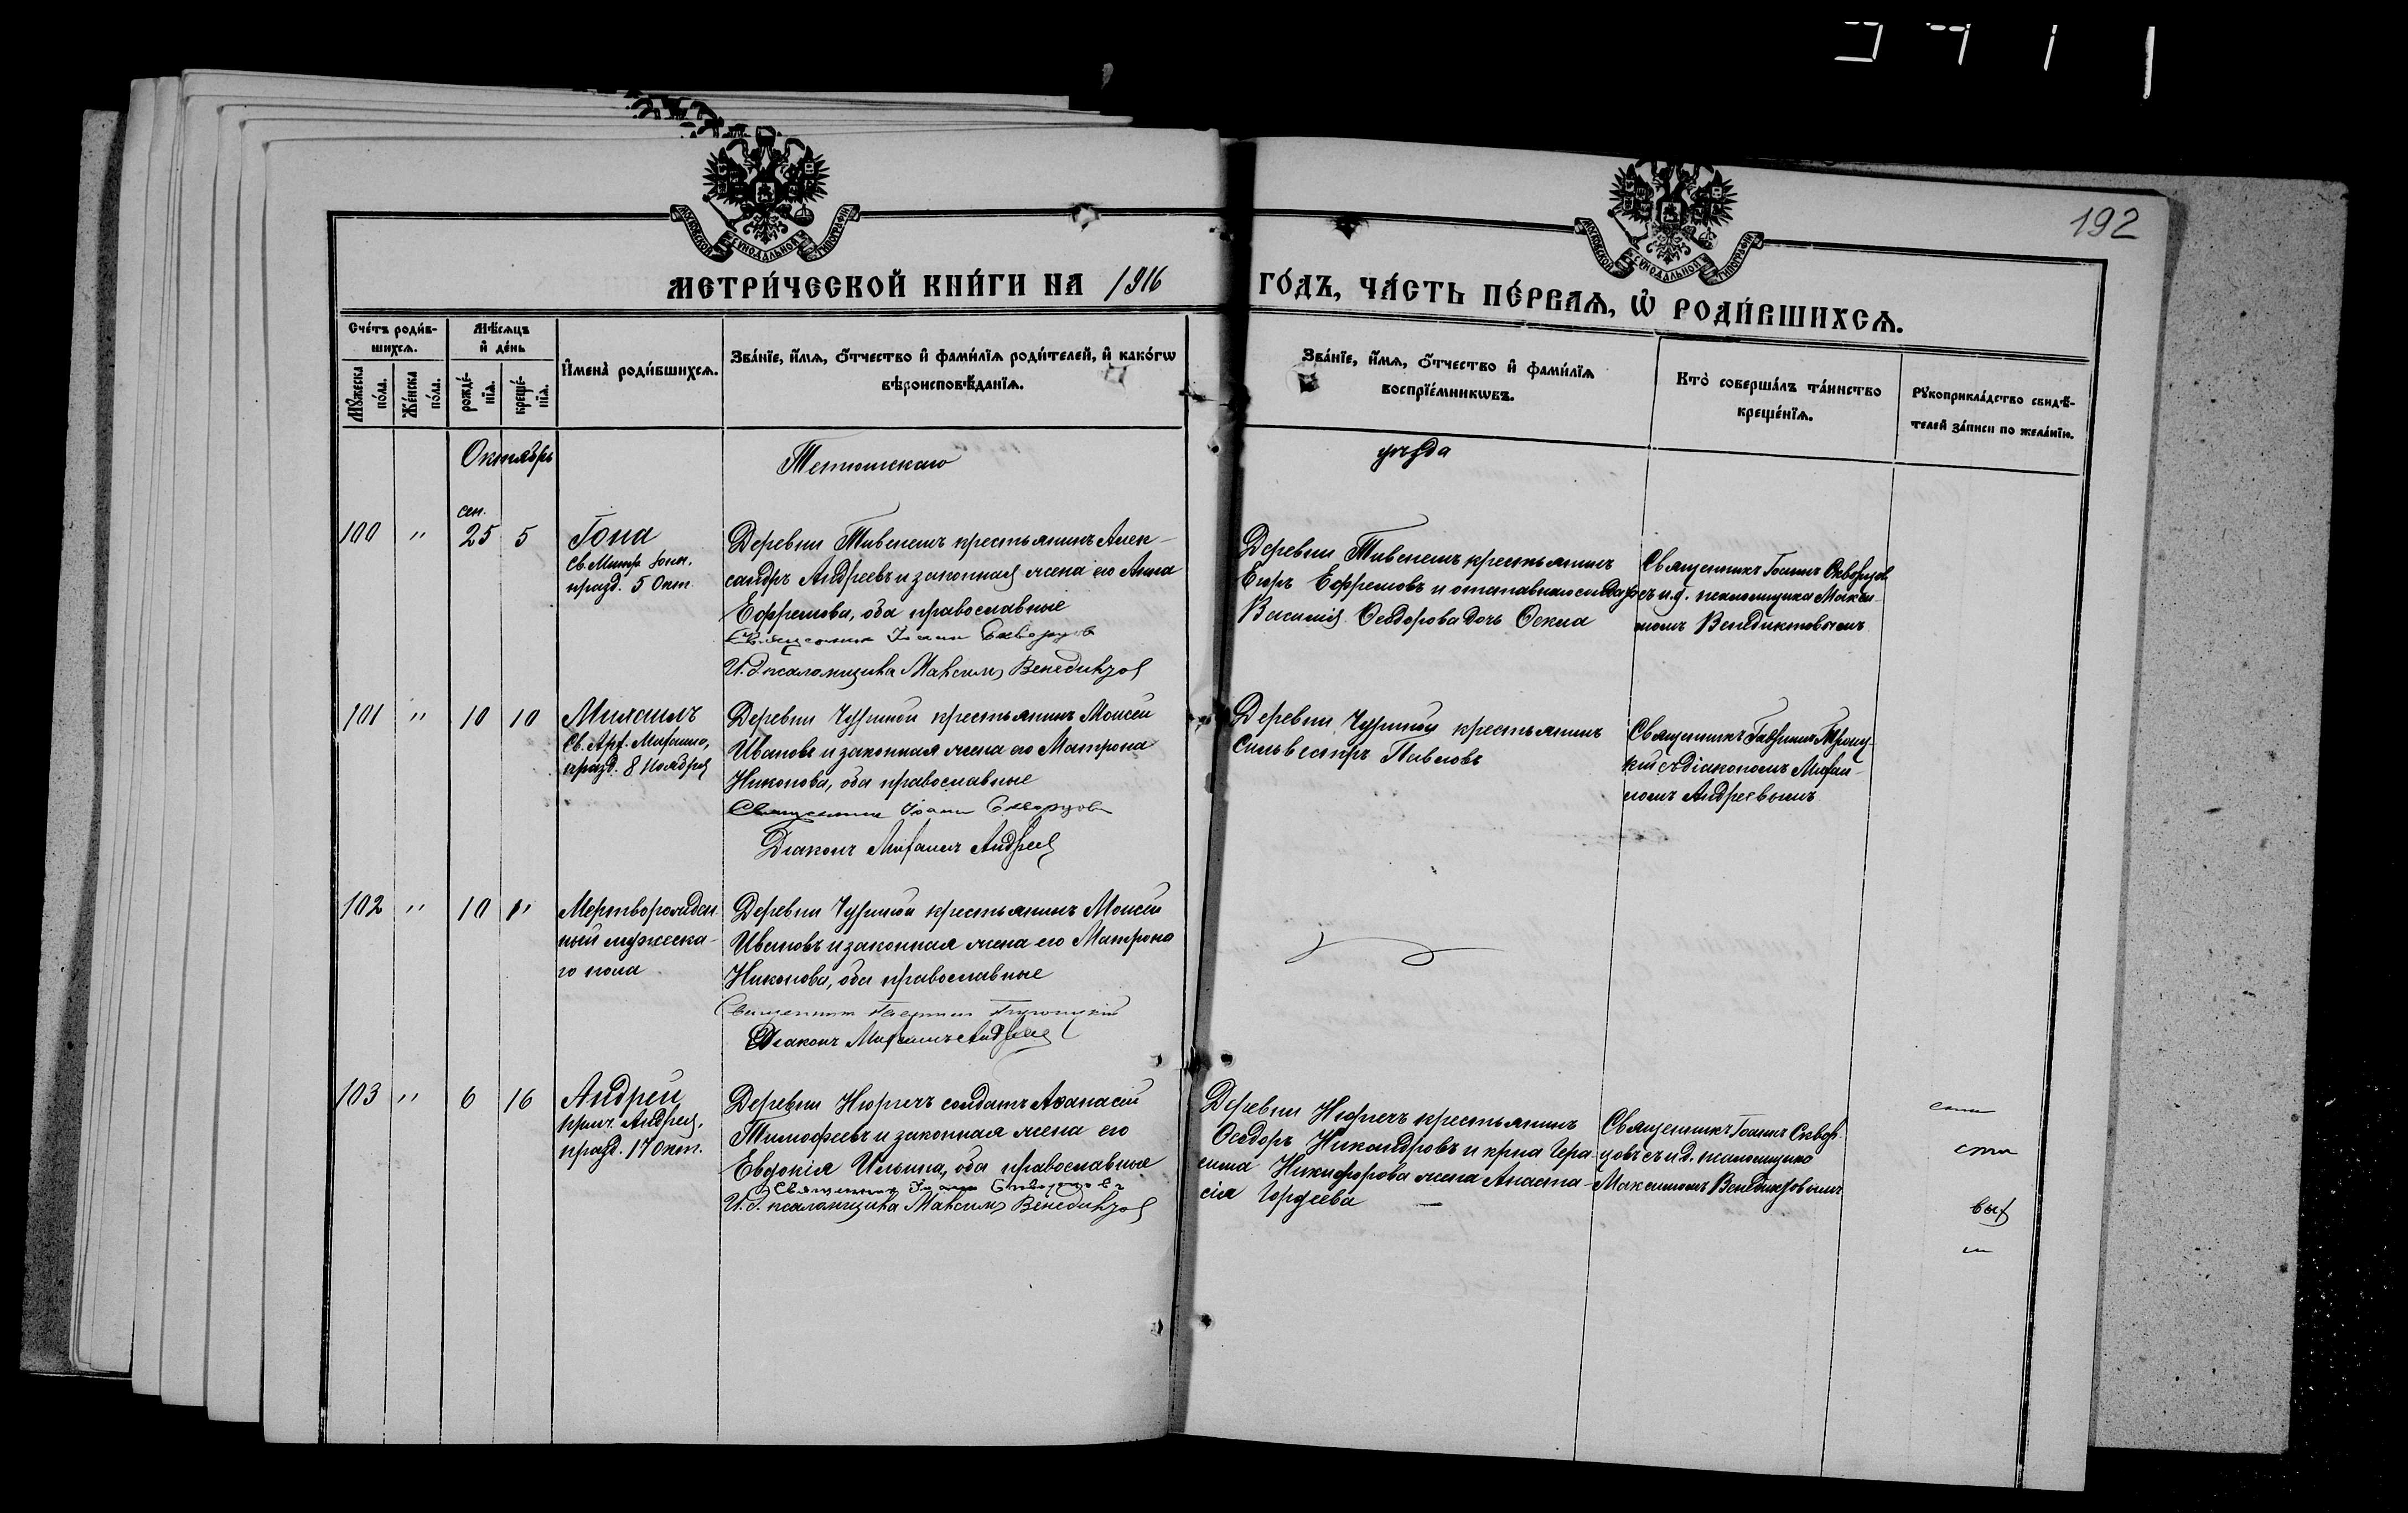 192
МОСКОВСКОЙ СѴНОДАЛЬНОЙ ТИПОГРАФІИ
МОСКОВСКОЙ СѴНОДАЛЬНОЙ ТИПОГРАФІИ
МЕТРИ́ЧЕСКОЙ КНИ́ГИ НА 1916 ГО́ДЪ, ЧА́СТЬ ПЕ́РВАѦ, Ѡ҆ РОДИ́ВШИХСѦ.
Сче́тъ роди́в-
шихсѧ.
Мꙋ́жеска по́ла.
Же́нска по́ла.
Мѣ́сѧцъ
и҆ де́нь
рожде́-
нїѧ.
креще́-
нїѧ.
И҆мена̀ роди́вшихсѧ.
Зва́нїе, и҆́мѧ, ѻ҆́тчество и҆ фами́лїѧ роди́телей, и҆ како́гѡ
вѣроисповѣ́данїѧ.
Зва́нїе, и҆́мѧ, ѻ҆́тчество и҆ фами́лїѧ
воспрїе́мникѡвъ.
Кто̀ соверша́лъ та́инство
креще́нїѧ.
Рꙋкоприкла́дство свидѣ́-
телей за́писи по жела́нїю.
Октябрь
Тетюшскаго
уѣзда
100 " сен. 25 5
Іона
Св. Митр. Іон.
празд. 5 Окт.
Деревни Тивенешъ крестьянинъ Алек-
сандръ Андреевъ и законная жена его Анна
Ефремова, оба православные
Священникъ Іоаннъ Скворцовъ
И. д. псаломщика Максимъ Венедиктов
Деревни Тивенешъ крестьянинъ
Егоръ Ефремовъ и отставного солдата
Василія Ѳеодорова дочь Ѳекла
Священникъ Іоаннъ Скворцов
съ и. д. псаломщика Макси-
момъ Венедиктовымъ
101 " 10 10
Михаилъ
Св. Арх. Михаила,
празд. 8 Ноября
Деревни Чуриной крестьянинъ Моисей
Ивановъ и законная жена его Матрона
Никонова, оба православные
Священникъ Іоаннъ Скворцовъ
Діаконъ Михаилъ Андреев
Деревни Чуриной крестьянинъ
Сильвестръ Павловъ
Священникъ Гавріилъ Троиц-
кій съ діакономъ Михаи-
ломъ Андреевымъ
102 " 10 "
Мертворожден-
ный мужеска-
го пола
Деревни Чуриной крестьянинъ Моисей
Ивановъ и законная жена его Матрона
Никонова, оба православные
Священникъ Гавріилъ Троицкій
Діаконъ Михаилъ Андреев
103 " 6 16
Андрей
прич. Андрея,
празд. 17 Окт.
Деревни Нюргечъ солдатъ Аѳанасій
Тимофеевъ и законная жена его
Евдокія Ильина, оба православные
Священникъ Іоаннъ Скворцовъ
И. д. псаломщика Максимъ Венедиктов
Деревни Нюргечъ крестьянинъ
Ѳеодоръ Никандровъ и крна Гера-
сима Никифорова жена Анаста-
сія Гордеева
Священникъ Іоаннъ Сквор-
цовъ съ и. д. псаломщика
Максимомъ Венедиктовымъ